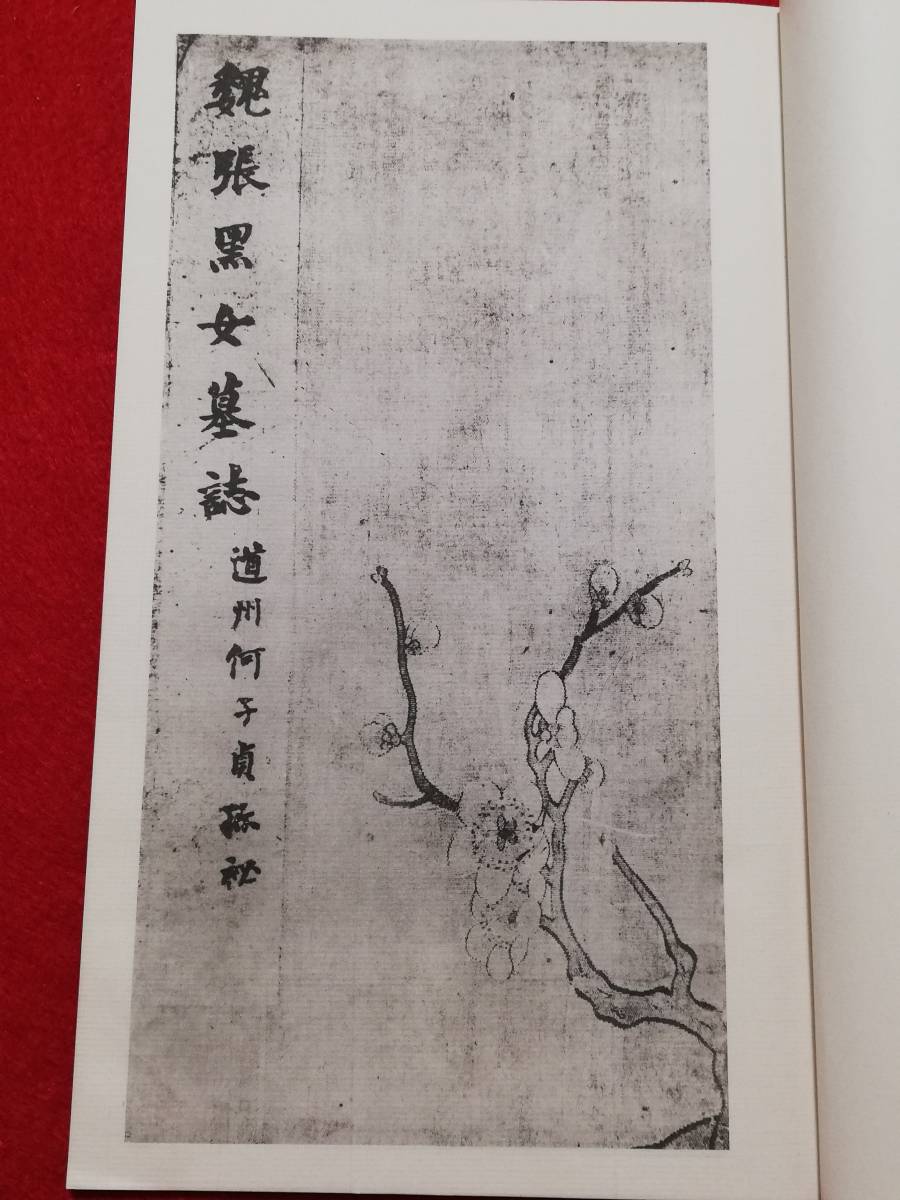 魏張黑女墓誌
道州何子貞孫祕